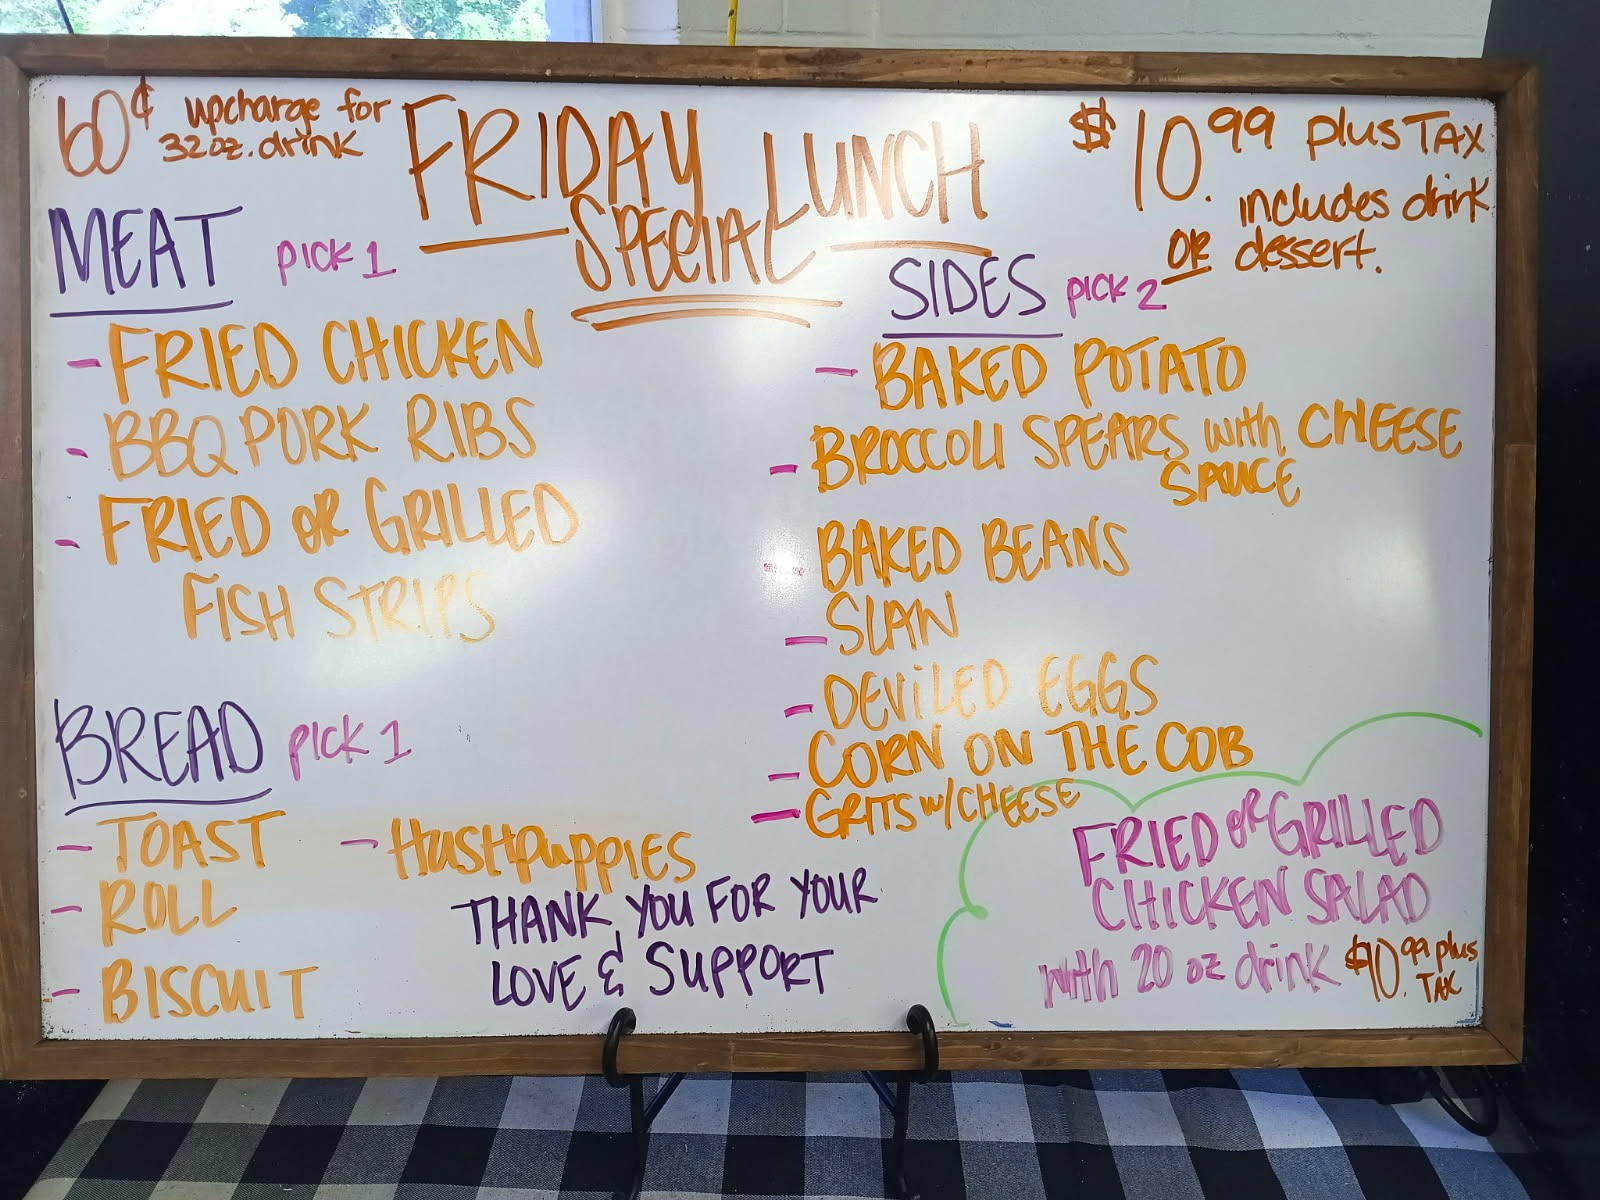 60¢ upcharge for
32oz. drink
FRIDAY LUNCH
SPECIAL
$10.99 plus TAX
includes drink
OR dessert.
MEAT pick 1
- FRIED CHICKEN
- BBQ PORK RIBS
- FRIED OR GRILLED
FISH STRIPS
SIDES pick 2
- BAKED POTATO
- BROCCOLI SPEARS with CHEESE
SAUCE
- BAKED BEANS
- SLAW
- DEVILED EGGS
- CORN ON THE COB
- GRITS w/CHEESE
BREAD pick 1
- TOAST - HUSHPUPPIES
- ROLL
- BISCUIT
THANK YOU FOR YOUR
LOVE & SUPPORT
FRIED OR GRILLED
CHICKEN SALAD
with 20 oz drink $10.99 plus
TAX